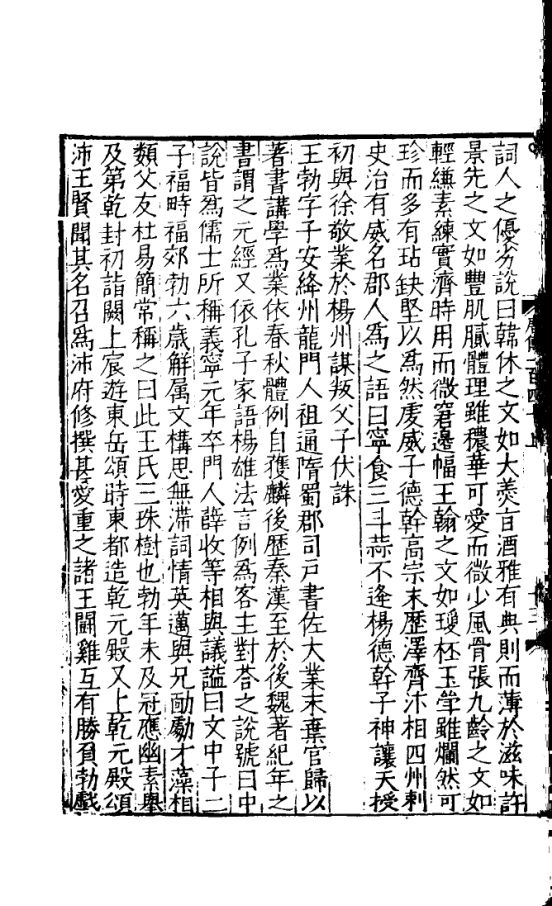 詞人之優劣說曰韓休之文如大羹㫖酒雅有典則而薄於滋味許
景先之文如豐肌膩體理雖穠華可愛而微少風骨張九齡之文如
輕縑素練實濟時用而微窘邊幅王翰之文如瓊杯玉斝雖爛然可
珍而多有玷缺堅以爲然䖍威子德幹高宗末歷澤齊汴相四州刺
史治有威名郡人爲之語曰寧食三斗蒜不逢楊德幹子神讓天授
初與徐敬業於楊州謀叛父子伏誅
王勃字子安絳州龍門人祖通隋蜀郡司戶書佐大業末棄官歸以
著書講學爲業依春秋體例自獲麟後歷秦漢至於後魏著紀年之
書謂之元經又依孔子家語楊雄法言例爲客主對荅之說號曰中
說皆爲儒士所稱義寧元年卒門人薛收等相與議謚曰文中子二
子福畤福郊勃六歲解属文構思無滯詞情英邁與兄勔勮才藻相
類父友杜易簡常稱之曰此王氏三珠樹也勃年未及冠應幽素舉
及第乾封初詣闕上宸遊東岳頌時東都造乾元殿又上乾元殿頌
沛王賢聞其名召爲沛府修撰甚愛重之諸王鬭雞互有勝負勃戲